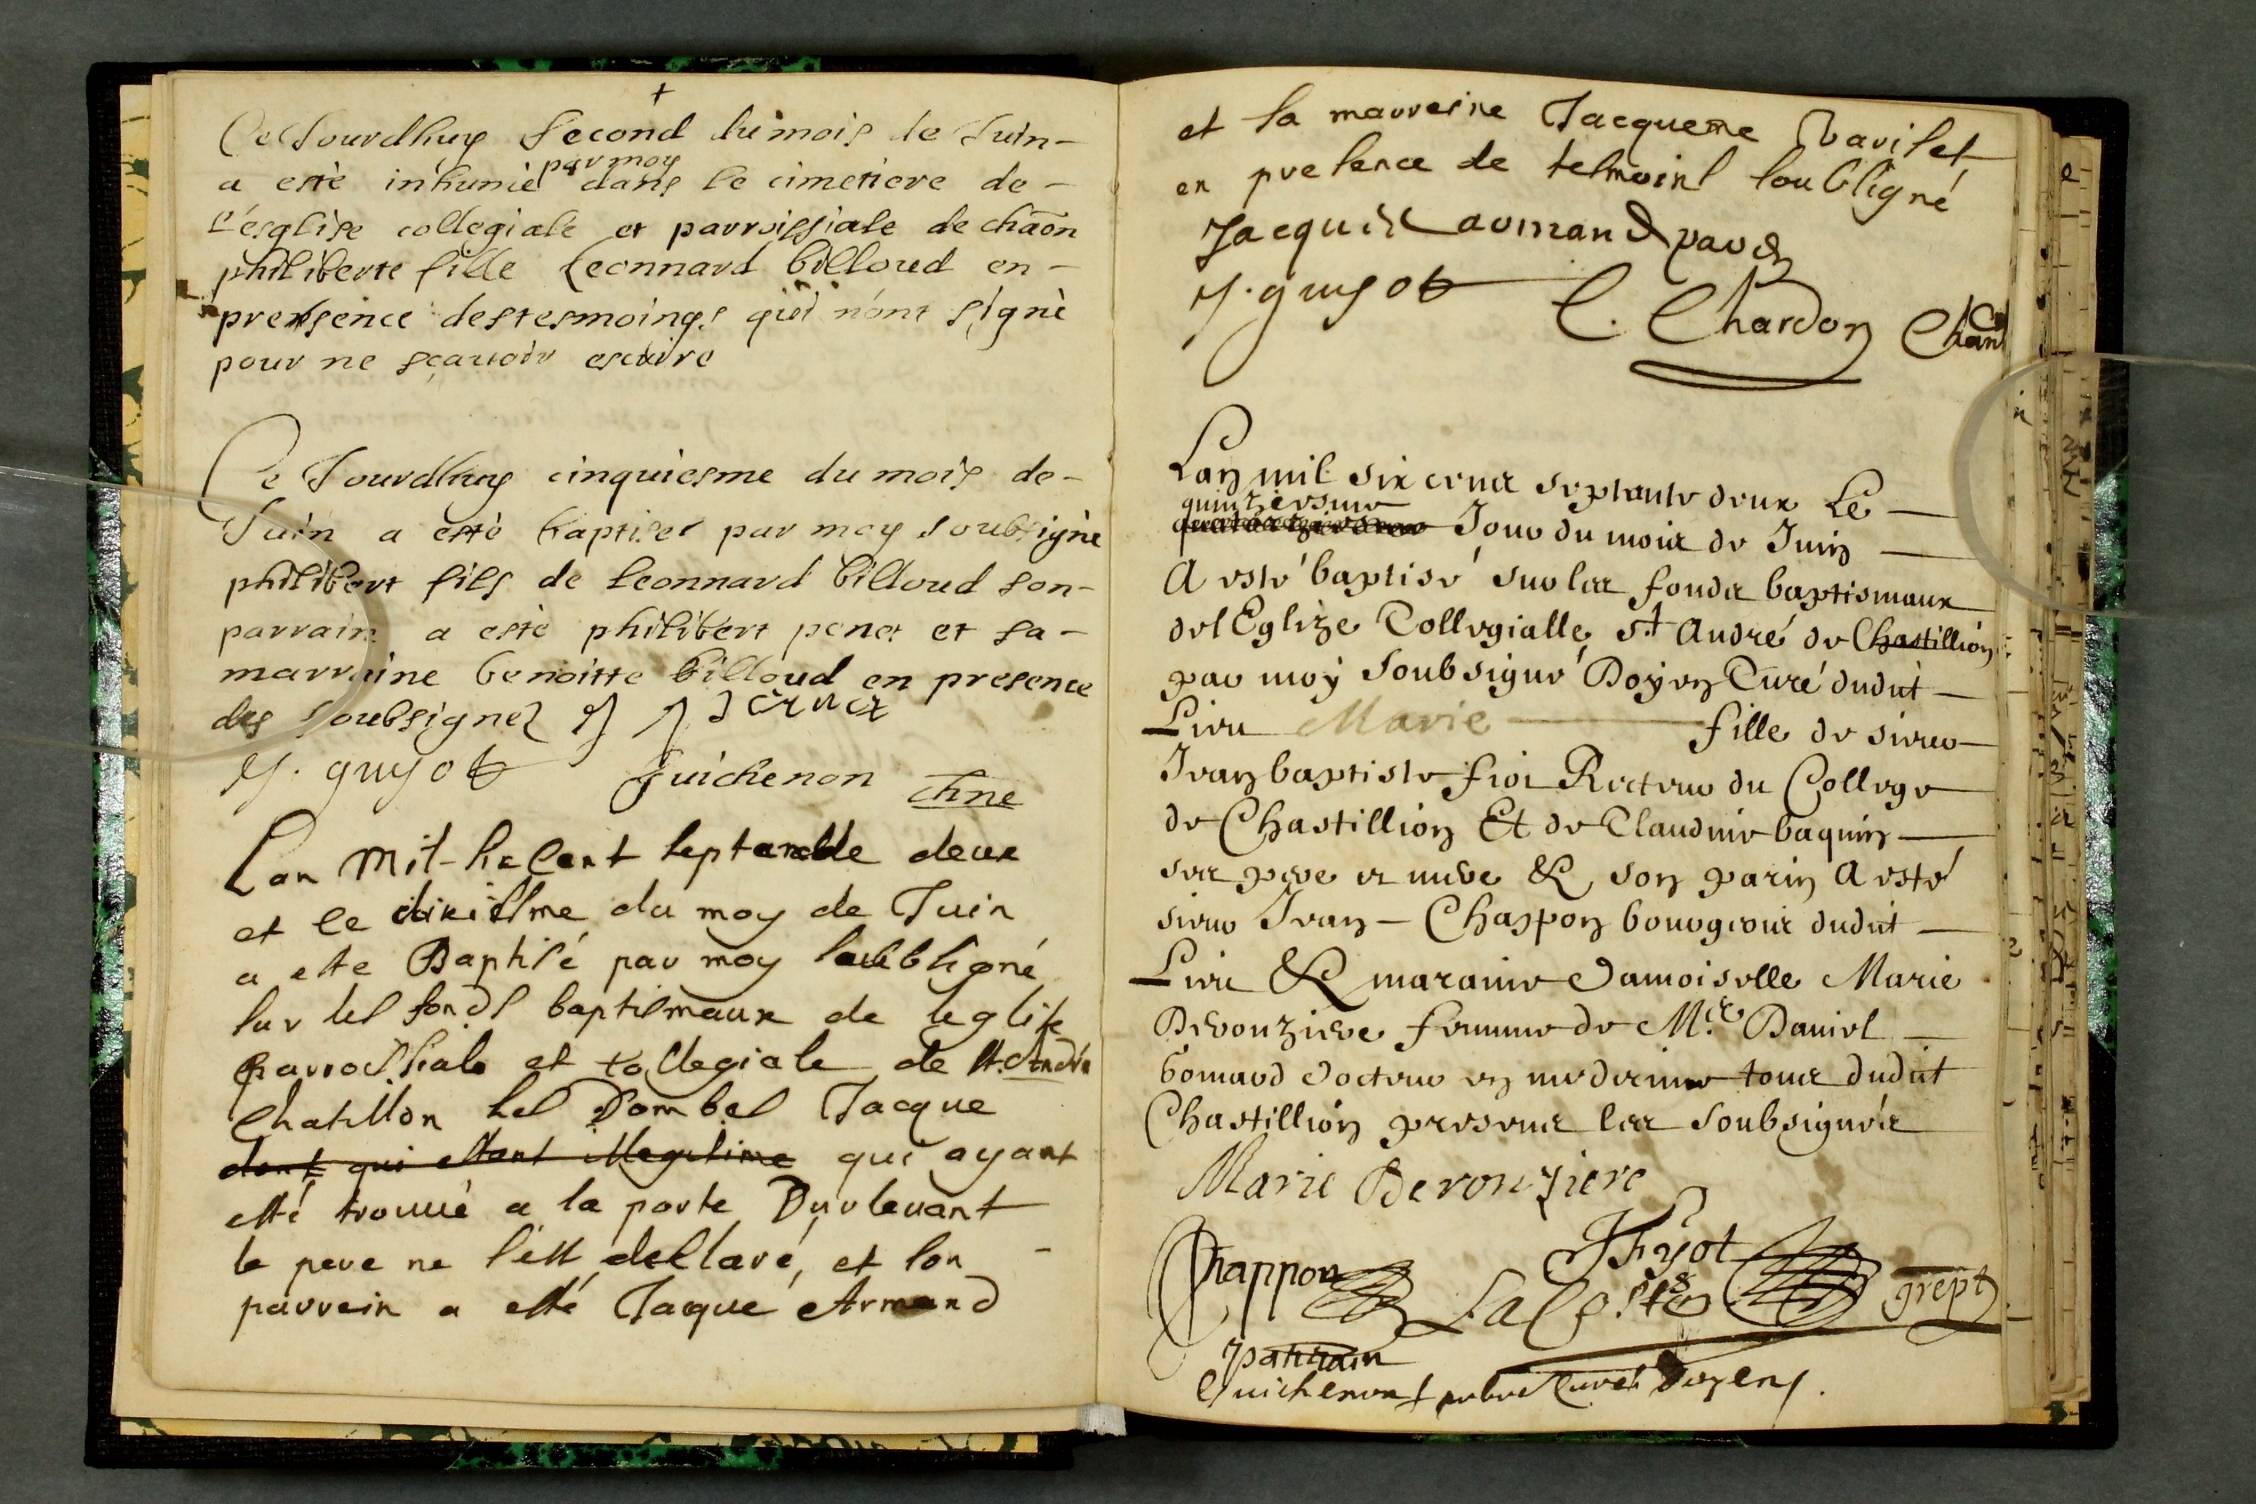 +
Ce Jourdhuy second du mois de Juin-
a esté inhumé par moy dans le cimetiere de-
l'ésglise collegiale et parroissiale de chãon
philiberte fille Leonnard billoud en-
presence des tesmoings qui n'ont signé
pour ne sçauoir escrire
Ce Jourdhuy cinquiesme du mois de-
Juin a esté baptisé par moy soubsigné
philibert fils de Leonnard billoud son-
parrain a esté philibert penet et sa-
marraine benoitte billoud en presence
des soubsignez
J. guyot Guichenon chne
Lan Mil-six Cent septante deux
et le dixiesme du moy de Juin
a este Baptisé par moy soubsigné
sur les fonds baptismaux de leglise
parrochiale et collegiale de St. André
Chatillon les Dombes Jacque
dont qui estant illegitime qui ayant
esté trouué a la porte Durleuant
le pere ne s'est desclaré, et son -
parrein a esté Jaque Armand
et sa marreine Jacqueme
en presence de tesmoins soubsigné
Jacques armand
J. guyot C. Chardon Chan
Lan mil six centz septante deux Le
quinziesme
quatorziesme Jour du mois de Juin
A esté baptisé sur les fondz baptismaux
de l Eglize Collegialle St André de Chastillion
par moy Soubsigné Doyen Curé dudit
Lieu Marie fille de sieur
Jean baptiste Recteur du College
de Chastillion Et de Claudine baquin
ses pere et mere & son parin A esté
sieur Jean - Chappon bourgeois dudit
Lieu & maraine Damoiselle Marie
Deronziere femme de Mre Daniel
bomard docteur en medecine tous dudit
Chastillion presentz les Soubsignés
Marie Deronziere
Chappon JFyot
LaCoste grept
parrain
Guichenon Curé Doyen.